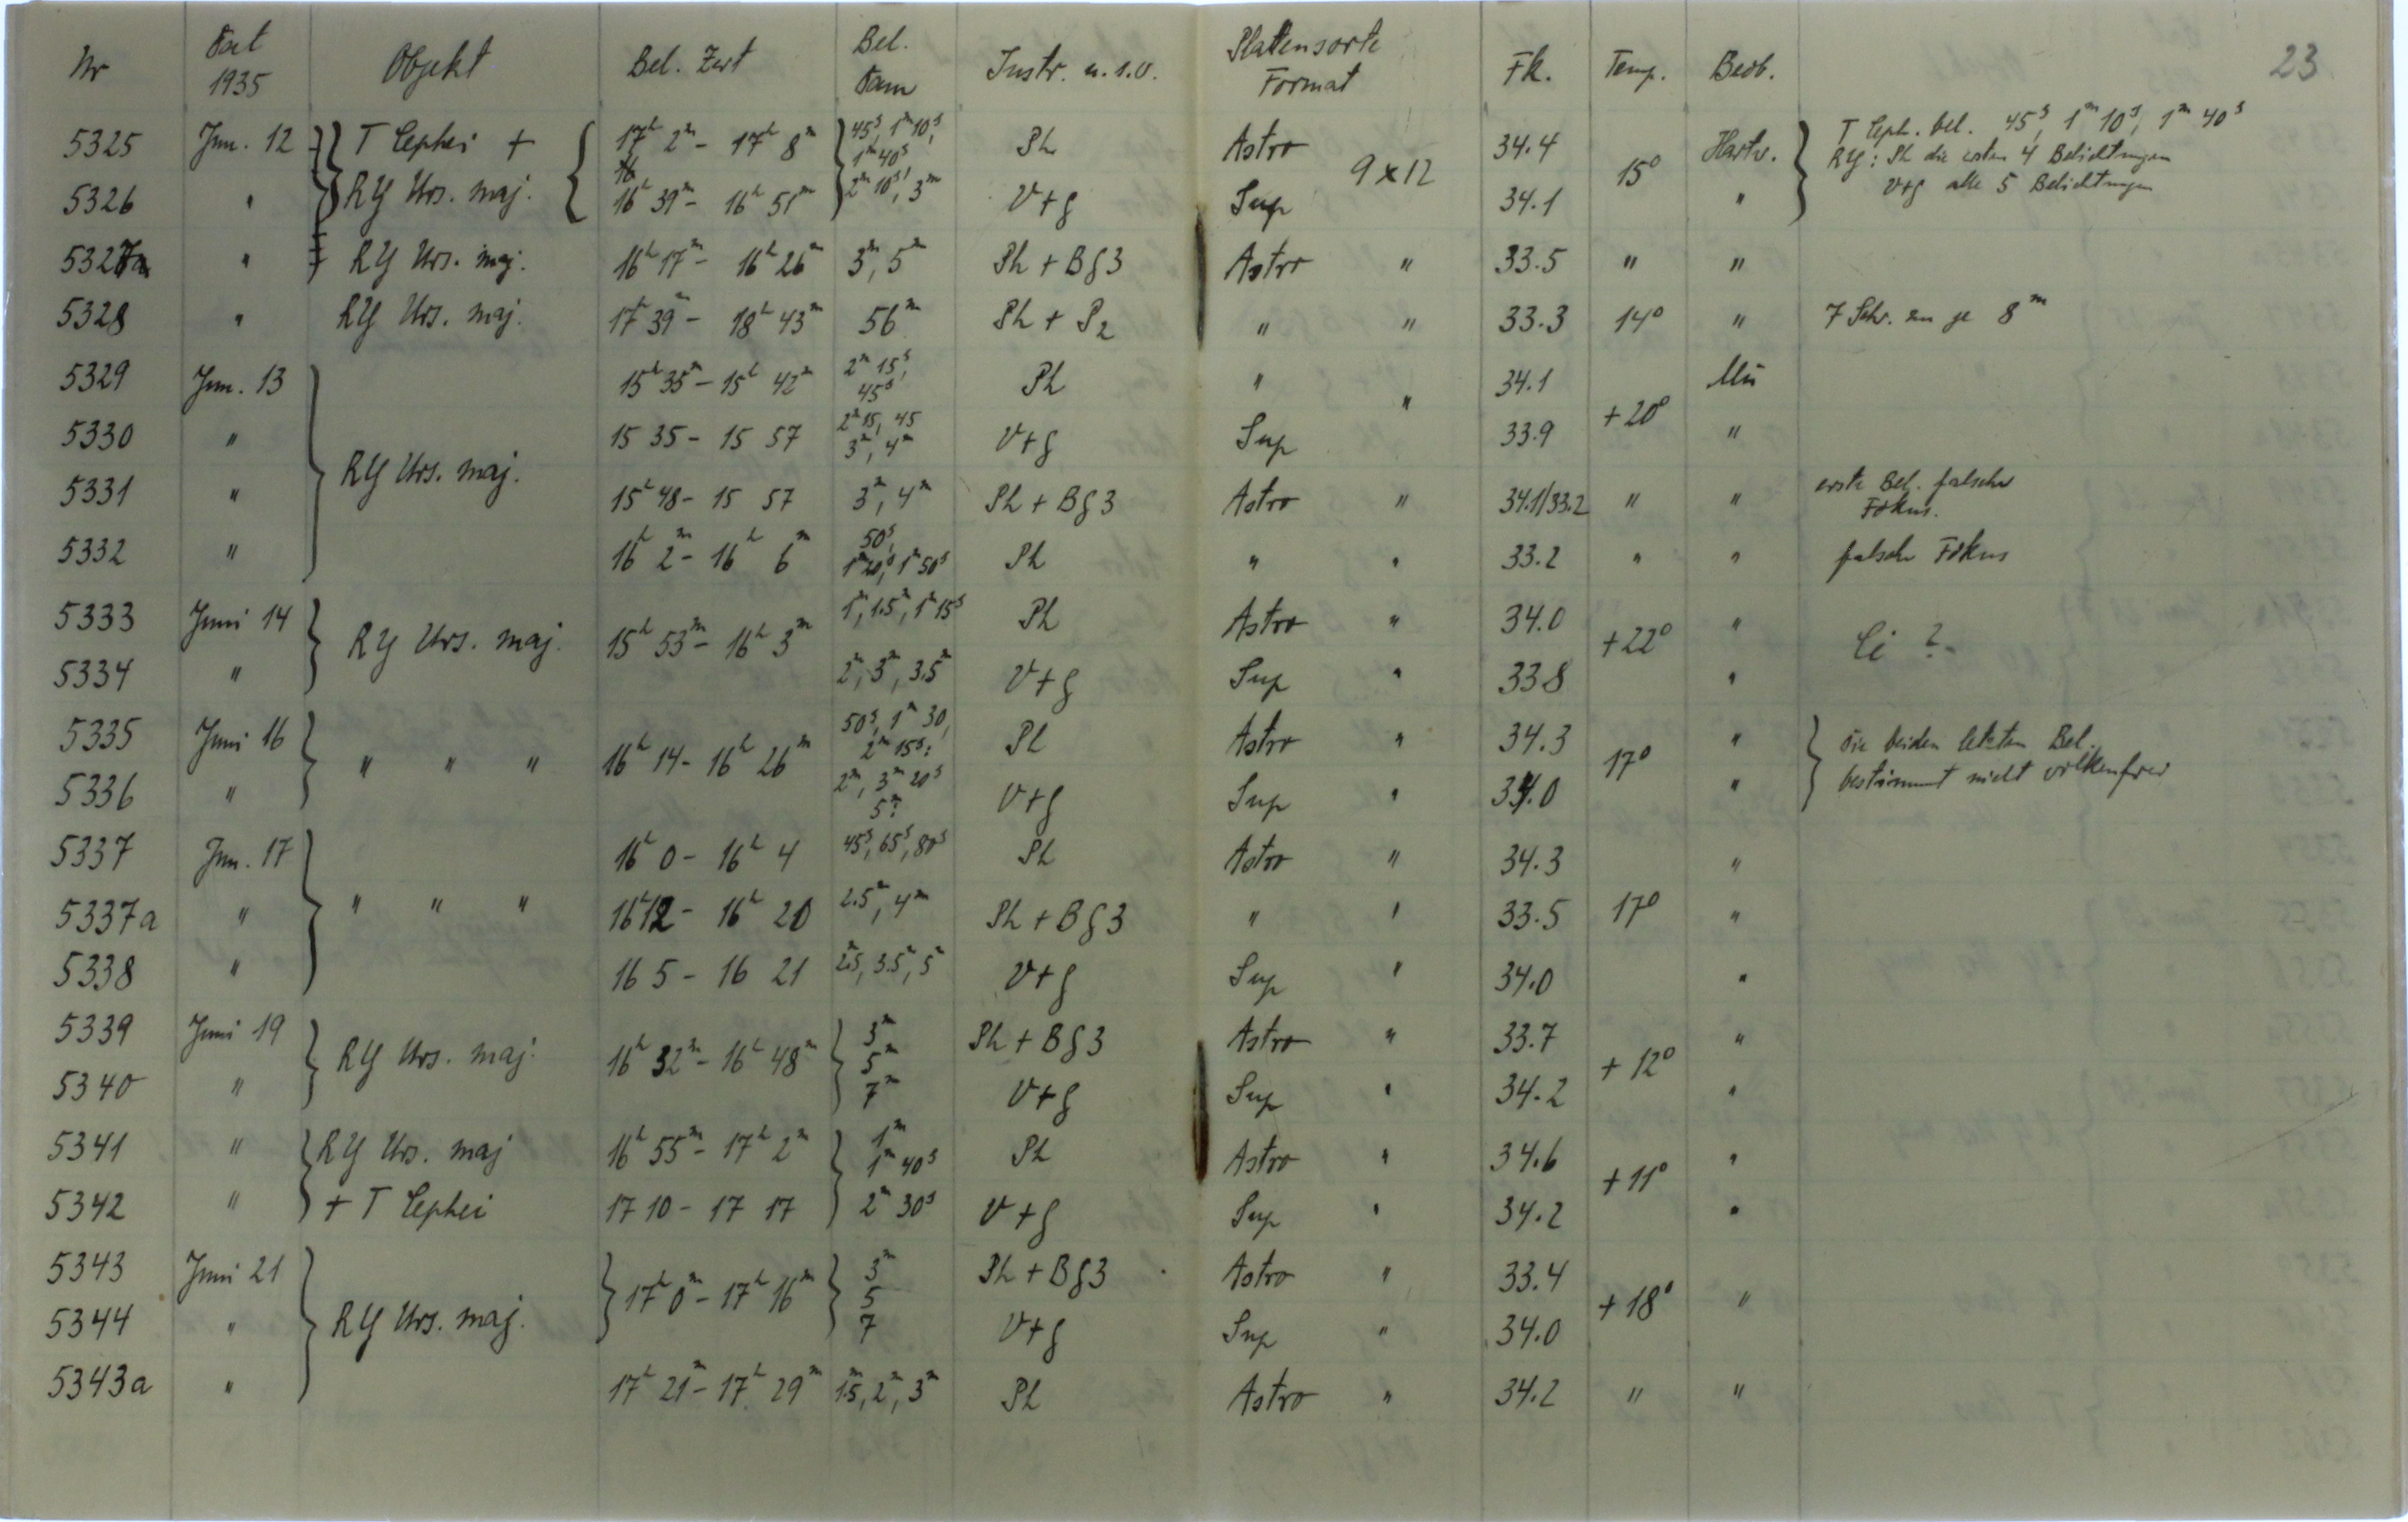 Nr Dat 1935 Objekt Bel. Zeit Bel. Dauer Instr. u.s.w. Plattensorte Format Fk. Temp. Beob. 23
5325 Jun. 12 } T Cephei + { 17h 2m - 17h 8m } 45s, 1m 10s, 1m 40s Ph Astro 9x12 34.4 15° Hartw. } T Ceph. bel. 45s, 1m 10s, 1m 40s
RY: Ph die ersten 4 Belichtungen
5326 " RY Urs. maj. 16h 39m - 16h 51m 2m 10s, 3m V+g Sup 34.1 " V+g alle 5 Belichtungen
5327a " RY Urs. maj. 16h 17m - 16h 26m 3m, 5m Ph + Bg3 Astro " 33.5 " "
5328 " RY Urs. maj. 17h 39m - 18h 43m 56m Ph + P2 " " 33.3 14° " 7 Sch. zu je 8m
5329 Jun. 13 } 15h 35m - 15h 42m 2m 15s, 45s Ph " " 34.1 +20° Mü
5330 " 15 35 - 15 57 2m 15, 45 3m, 4m V+g Sup 33.9 "
RY Urs. maj.
5331 " 15h 48 - 15 57 3m, 4m Ph + Bg3 Astro " 34.1/33.2 " " erste Bel. falscher Fokus.
5332 " 16h 2m - 16h 6m 50s, 1m 20s, 1m 50s Ph " " 33.2 " " falscher Fokus
5333 Juni 14 } RY Urs. maj. 15h 53m - 16h 3m 1m, 1.5m, 1m 15s Ph Astro " 34.0 +22° " Ci ?
5334 " 2m, 3m, 3.5m V+g Sup " 33.8 "
5335 Juni 16 } " " " 16h 14 - 16h 26m 50s, 1m 30, 2m 15s: Ph Astro " 34.3 17° " } die beiden letzten Bel.
5336 " 2m, 3m 20s 5m: V+g Sup " 34.0 " bestimmt nicht wolkenfrei
5337 Jun. 17 } 16h 0 - 16h 4 45s, 65s, 80s Ph Astro " 34.3 "
5337a " " " " 16h 12 - 16h 20 2.5m, 4m Ph + Bg3 " " 33.5 17° "
5338 " 16 5 - 16 21 2.5m, 3.5m, 5m V+g Sup " 34.0 "
5339 Juni 19 } RY Urs. maj. 16h 32m - 16h 48m } 3m 5m 7m Ph + Bg3 Astro " 33.7 + 12° "
5340 " V+g Sup " 34.2 "
5341 " } RY Urs. maj 16h 55m - 17h 2m } 1m 1m 40s Ph Astro " 34.6 + 11° "
5342 " + T Cephei 17 10 - 17 17 2m 30s V+g Sup " 34.2 "
5343 Juni 21 } } 17h 0m - 17h 16m } 3m 5 7 Ph + Bg3 Astro " 33.4 + 18° "
5344 " RY Urs. maj. V+g Sup " 34.0
5343a " 17h 21m - 17h 29m 1.5m, 2m, 3m Ph Astro " 34.2 " "